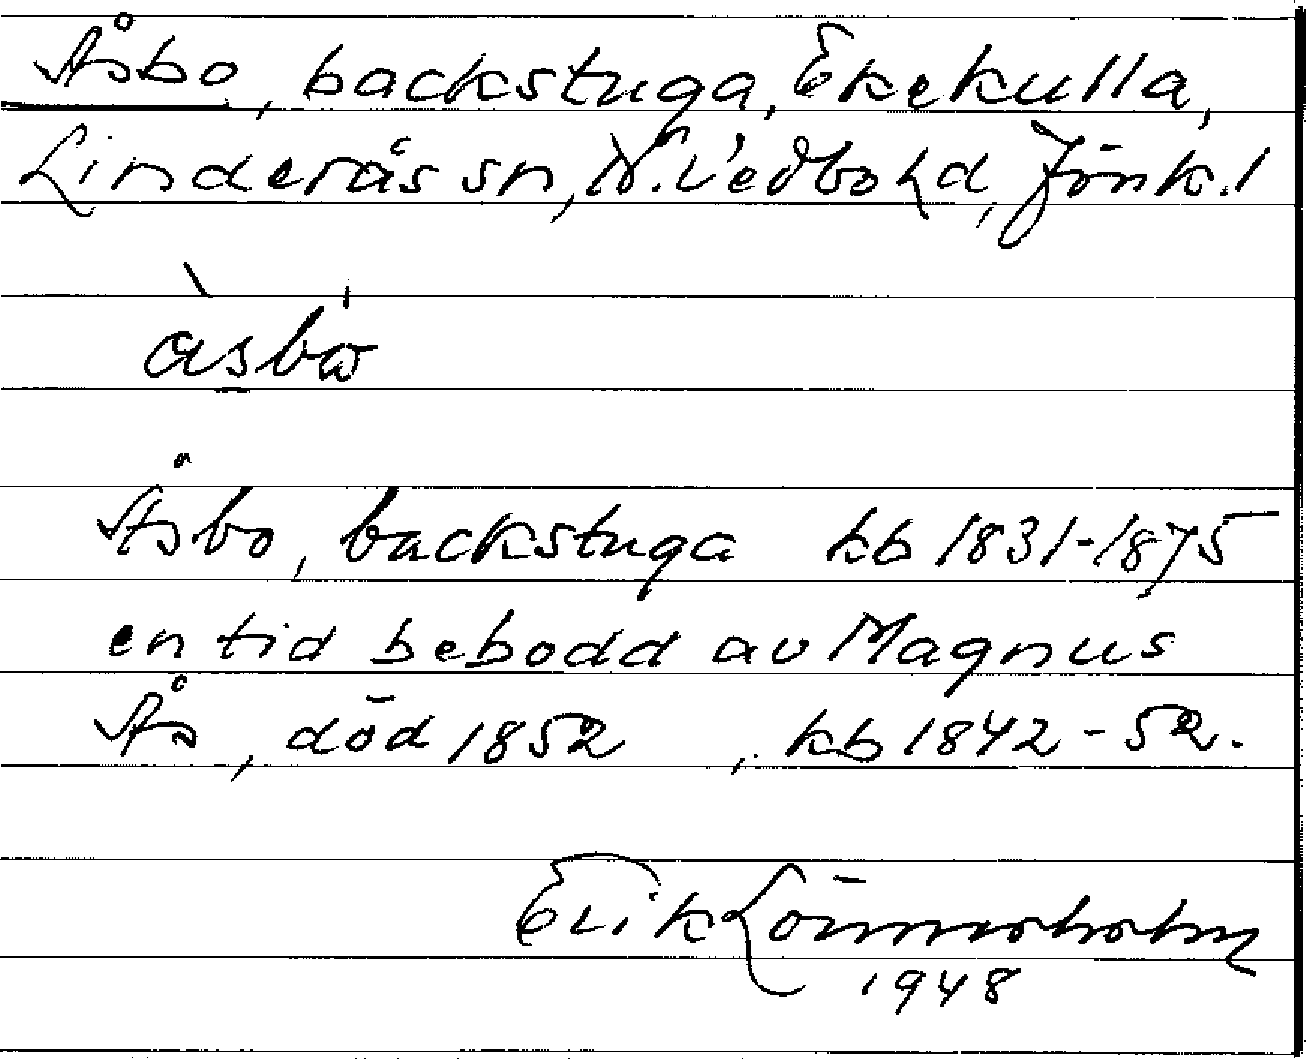 Åsbo, backstuga, Ekekulla,
Linderås sn, N. Vedbo hd, Jönk. l
Åsbo, backstuga kb 1831-1875
en tid bebodd av Magnus
Ås, död 1852, kb 1842-52.
Erik Lönnerholm
1948